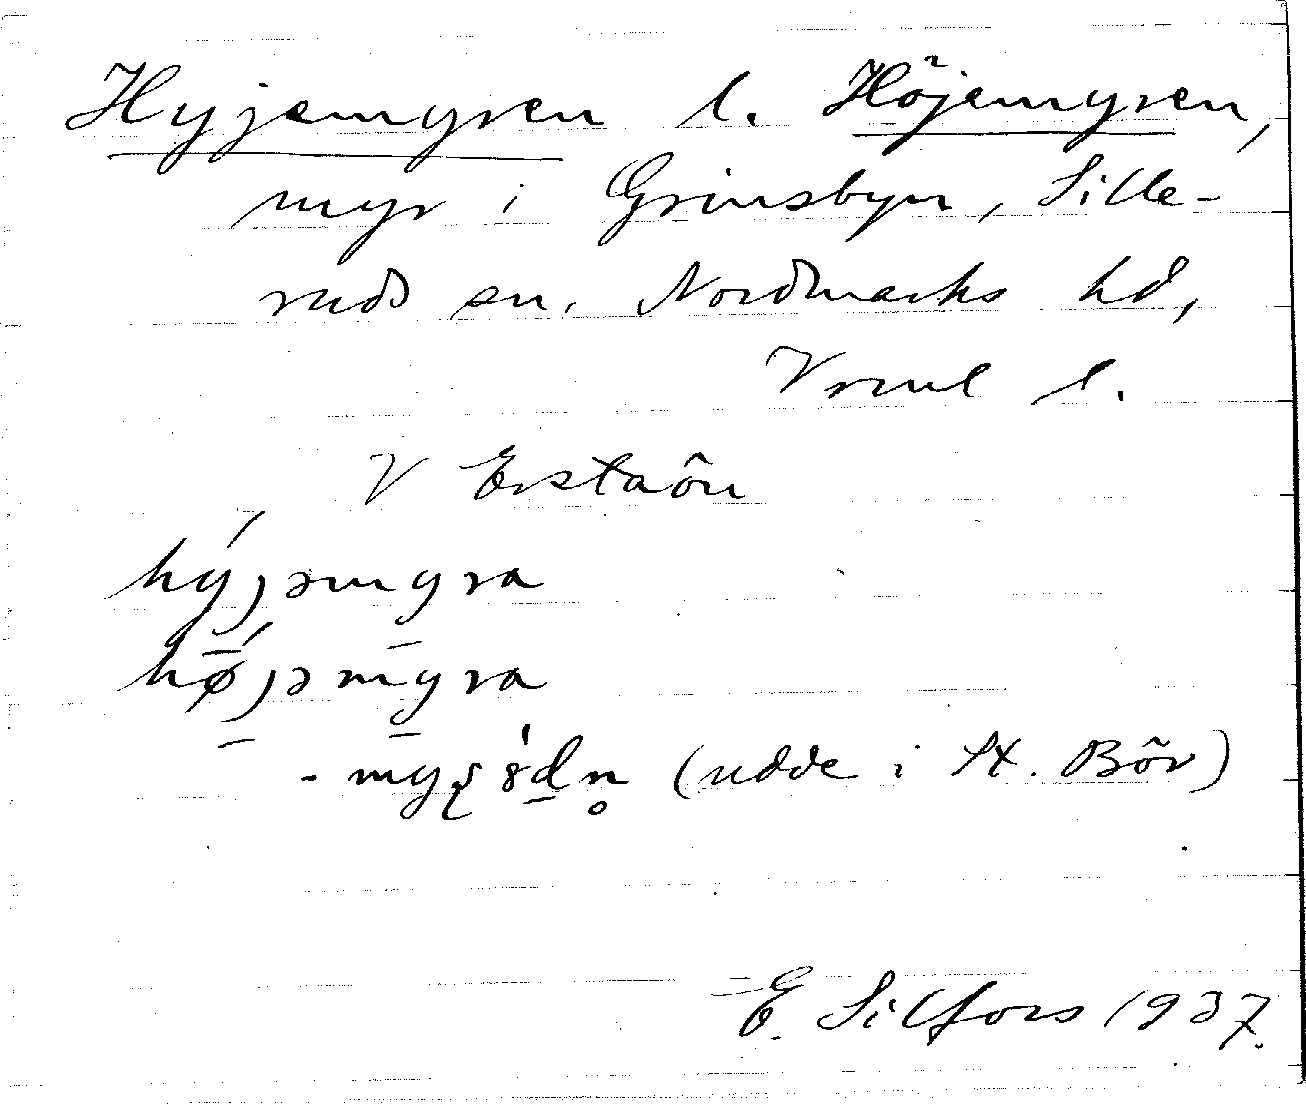 Hyjemyren l. Höjemyren,
myr i Grinsbyn, Sille-
ruds sn. Nordmarks hd,
Vrml l.
V Erstaön
hýjəmyra
hø̄́jəmȳra
- myɽ (udde i St. Bör)
E. Silfors 1937.